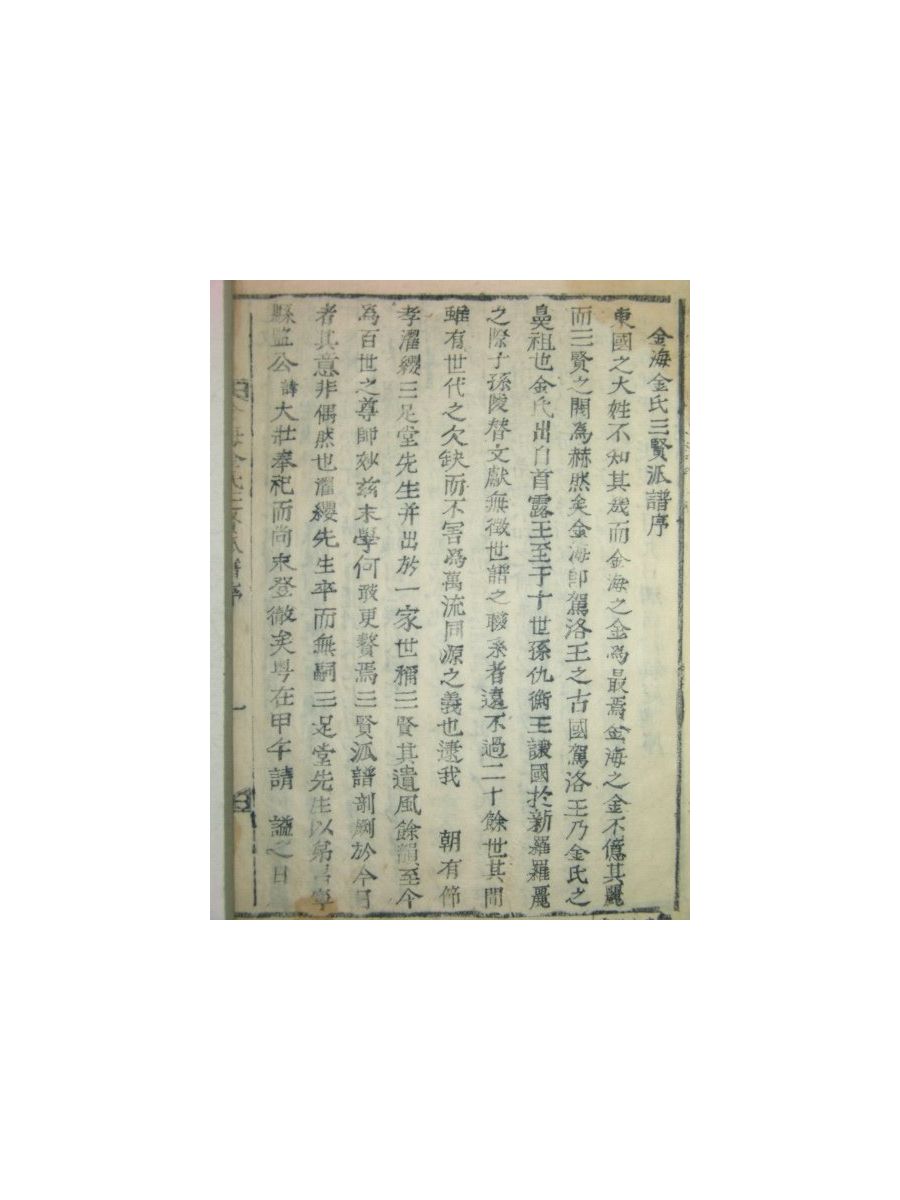 金海金氏三賢派譜序
東國之大姓不知其幾而金海之金爲最焉金海之金不億其麗
而三賢之闕爲赫然矣金海卽駕洛王之古國駕洛王乃金氏之
鼻祖也金氏出自首露王至于十世孫仇衡王讓國於新羅羅麗
之際子孫陵替文獻無徵世譜之聯系者遠不過二十餘世其間
雖有世代之欠缺而不害爲萬流同源之義也逮我 朝有節
孝濯纓三足堂先生并出於一家世稱三賢其遺風餘韻至今
爲百世之尊師妙玆末學何敢更贅焉三賢派譜剞劂於今日
者其意非偶然也濯纓先生卒而無嗣三足堂先生以弟
縣監公諱大壯奉祀而尙未登徹矣粤在甲午請 謚之日